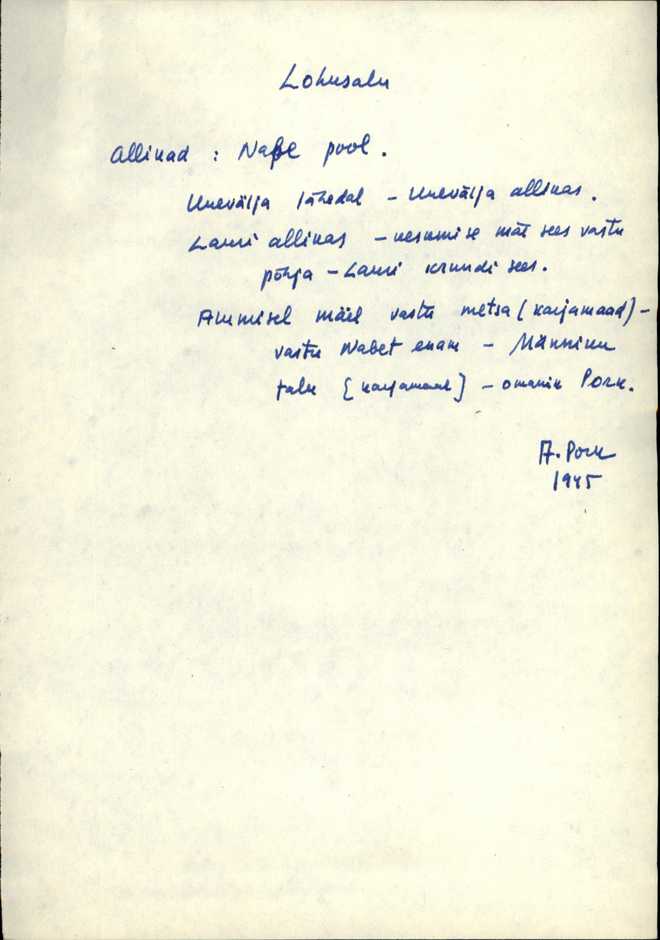 Lohusalu
Allikad : Nabe pool.
Unevälja lähedal – Unevälja allikas.
Lauri allikas – keskmise mäe sees vastu
põhja – Lauri krundi sees.
Alumisel mäel vastu metsa (karjamaad) –
vastu Nabet enam – Männiku
talu [karjamaal] – omanik Pork.
A. Pork
1945